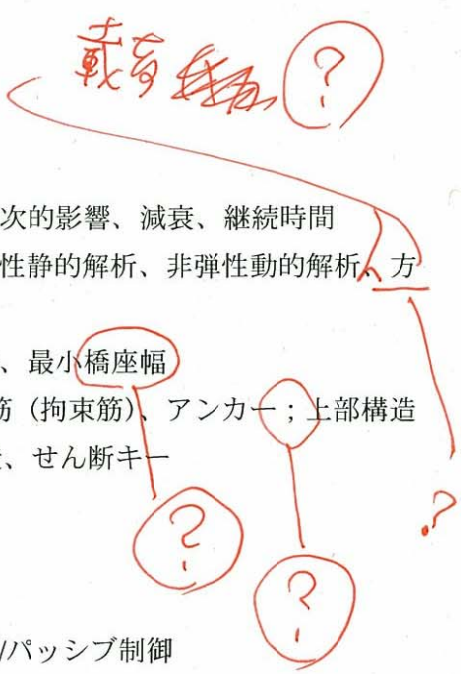 ?
次的影響、減衰、継続時間
性静的解析、非弾性動的解析、方
、最小橋座幅
筋（拘束筋）、アンカー；上部構造
、せん断キー
?
?
?
/パッシブ制御